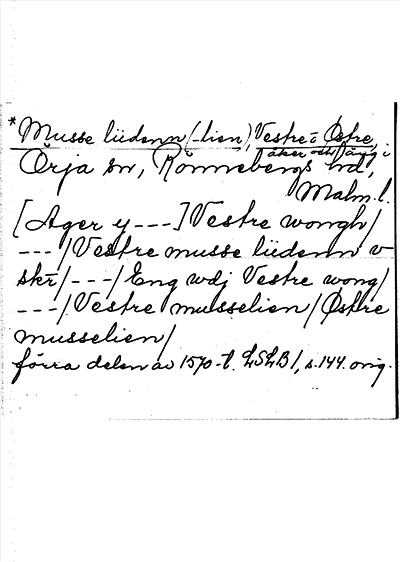 *Musse lüdenn (-lien), Vestre- o Østre,
åker och äng i
Örja sn, Rönnebergs hd,
Malm.l.
[Ager y ---] Vestre wongh/
---/Vestre musse lüdenn v
skr/---/Eng wdj Vestre wong/
---/Vestre musselien/Østre
musselien/
förra delen av 1570-t. LSLB 1, s.144. orig.